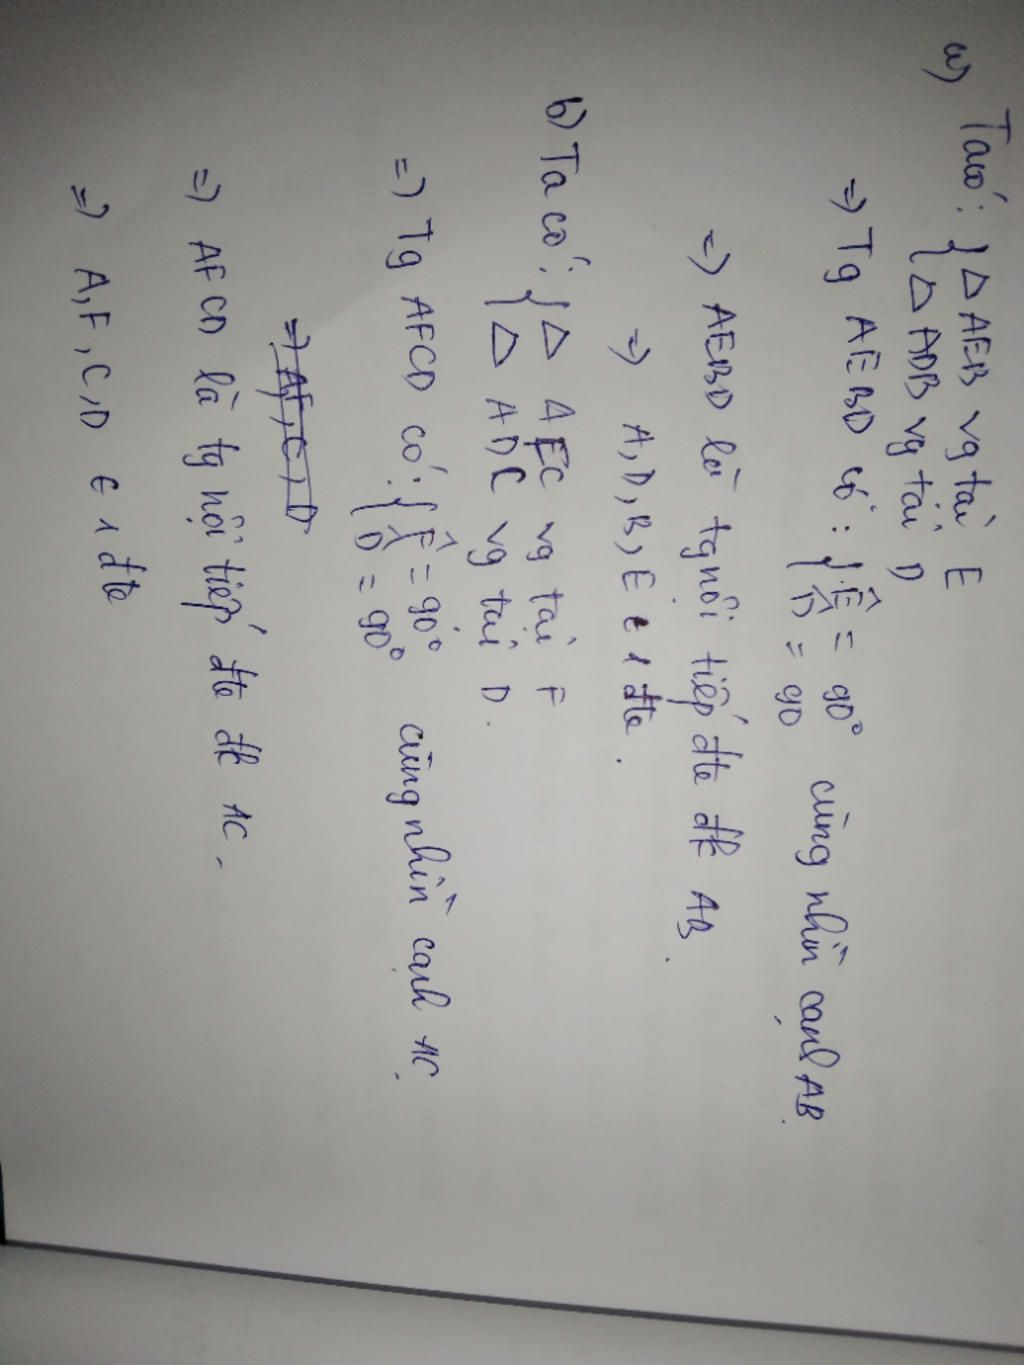 a) Ta có: { Δ AEB vg tại E
{ Δ ADB vg tại D
=) Tg AEBD có: { Ê = 90°
{ D̂ = 90 cùng nhìn cạnh AB.
=) AEBD là tg nội tiếp đtr đk AB.
=) A, D, B, E ∈ 1 đtr.
b) Ta có: { Δ AFC vg tại F
{ Δ ADC vg tại D.
=) Tg AFCD có: { F̂ = 90°
{ D̂ = 90° cùng nhìn cạnh AC.
=) AF, C, D
=) AFCD là tg nội tiếp đtr đk AC.
=) A, F, C, D ∈ 1 đtr